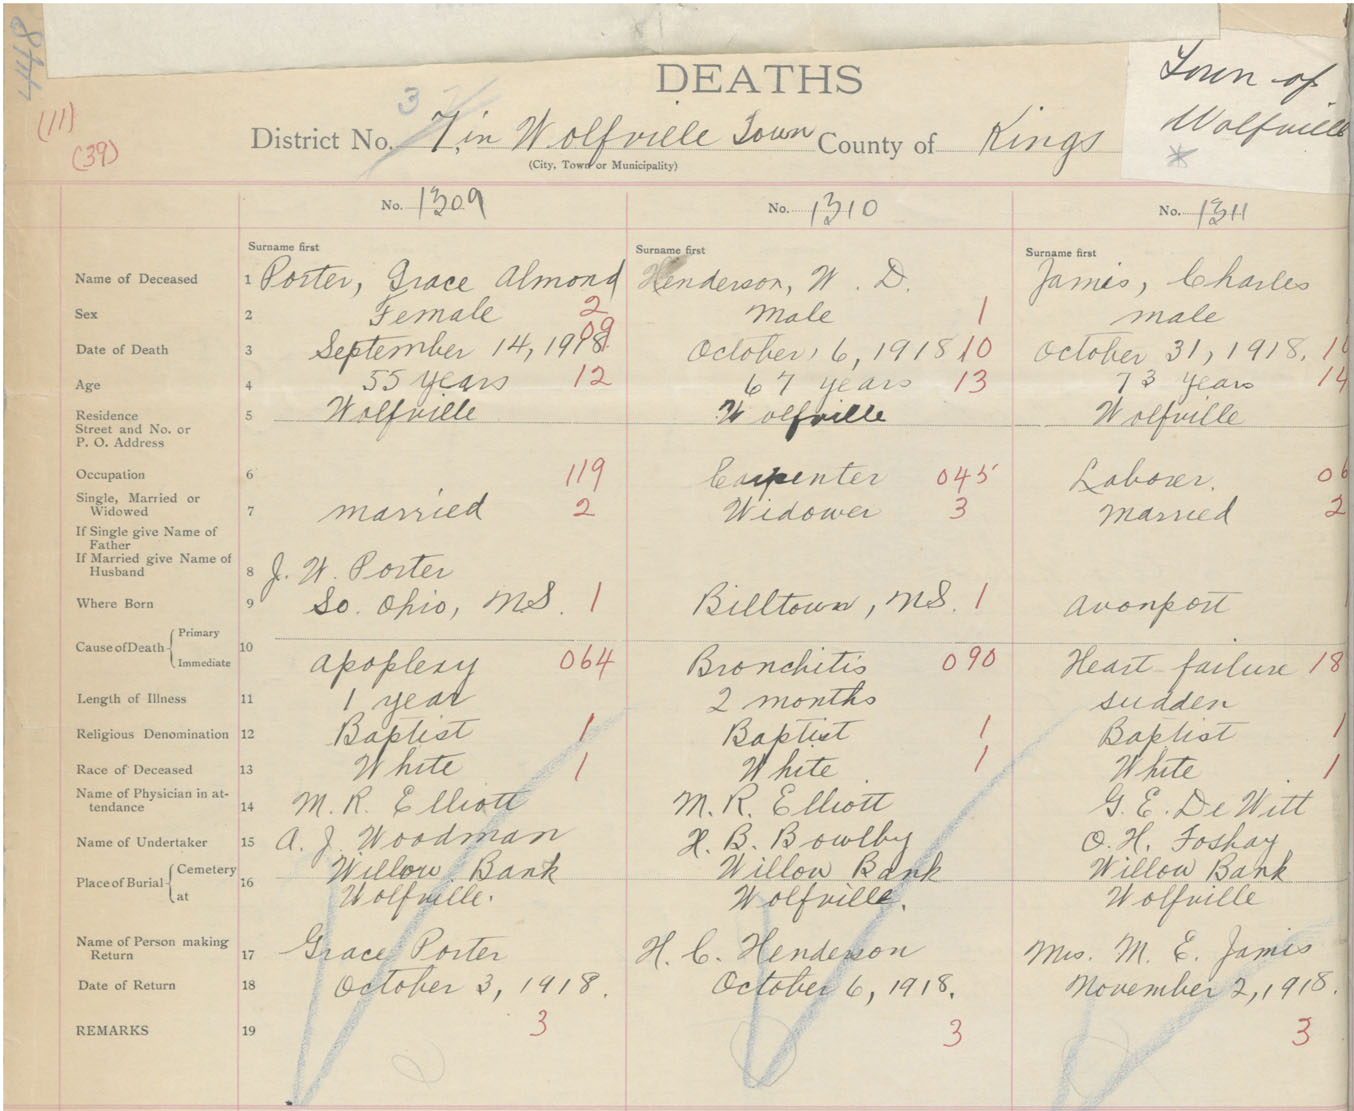 448
(11)
(39)
DEATHS
Town of
Wolfville
3
District No. 7, in Wolfville Town County of Kings
(City, Town or Municipality)
No. 1309 No. 1310 No. 1311
Surname first Surname first Surname first
Name of Deceased 1 Porter, Grace Almond Henderson, W. D. Jamis, Charles
Sex 2 Female 2 Male 1 male
Date of Death 3 September 14, 1918 09 October, 6, 1918 10 October 31, 1918. 1
Age 4 55 years 12 67 years 13 73 years 14
Residence 5 Wolfville Wolfville Wolfville
Street and No. or
P. O. Address
Occupation 6 119 Carpenter 045 Laborer. 06
Single, Married or
Widowed 7 married 2 Widower 3 married 2
If Single give Name of
Father
If Married give Name of
Husband 8 J. W. Porter
Where Born 9 So. Ohio, N.S. 1 Billtown, N.S. 1 Avonport
Cause of Death Primary 10
Immediate Apoplexy 064 Bronchitis 090 Heart failure 18
Length of Illness 11 1 year 2 months sudden
Religious Denomination 12 Baptist 1 Baptist 1 Baptist 1
Race of Deceased 13 White 1 White 1 White 1
Name of Physician in at-
tendance 14 M. R. Elliott M. R. Elliott G. E. De Witt
Name of Undertaker 15 A. J. Woodman H. B. Bowlby O. H. Foshay
Place of Burial Cemetery 16 Willow Bank Willow Bank Willow Bank
at Wolfville. Wolfville. Wolfville
Name of Person making
Return 17 Grace Porter H. C. Henderson Mrs. M. E. Jamis
Date of Return 18 October 3, 1918. October 6, 1918. November 2, 1918.
REMARKS 19 3 3 3